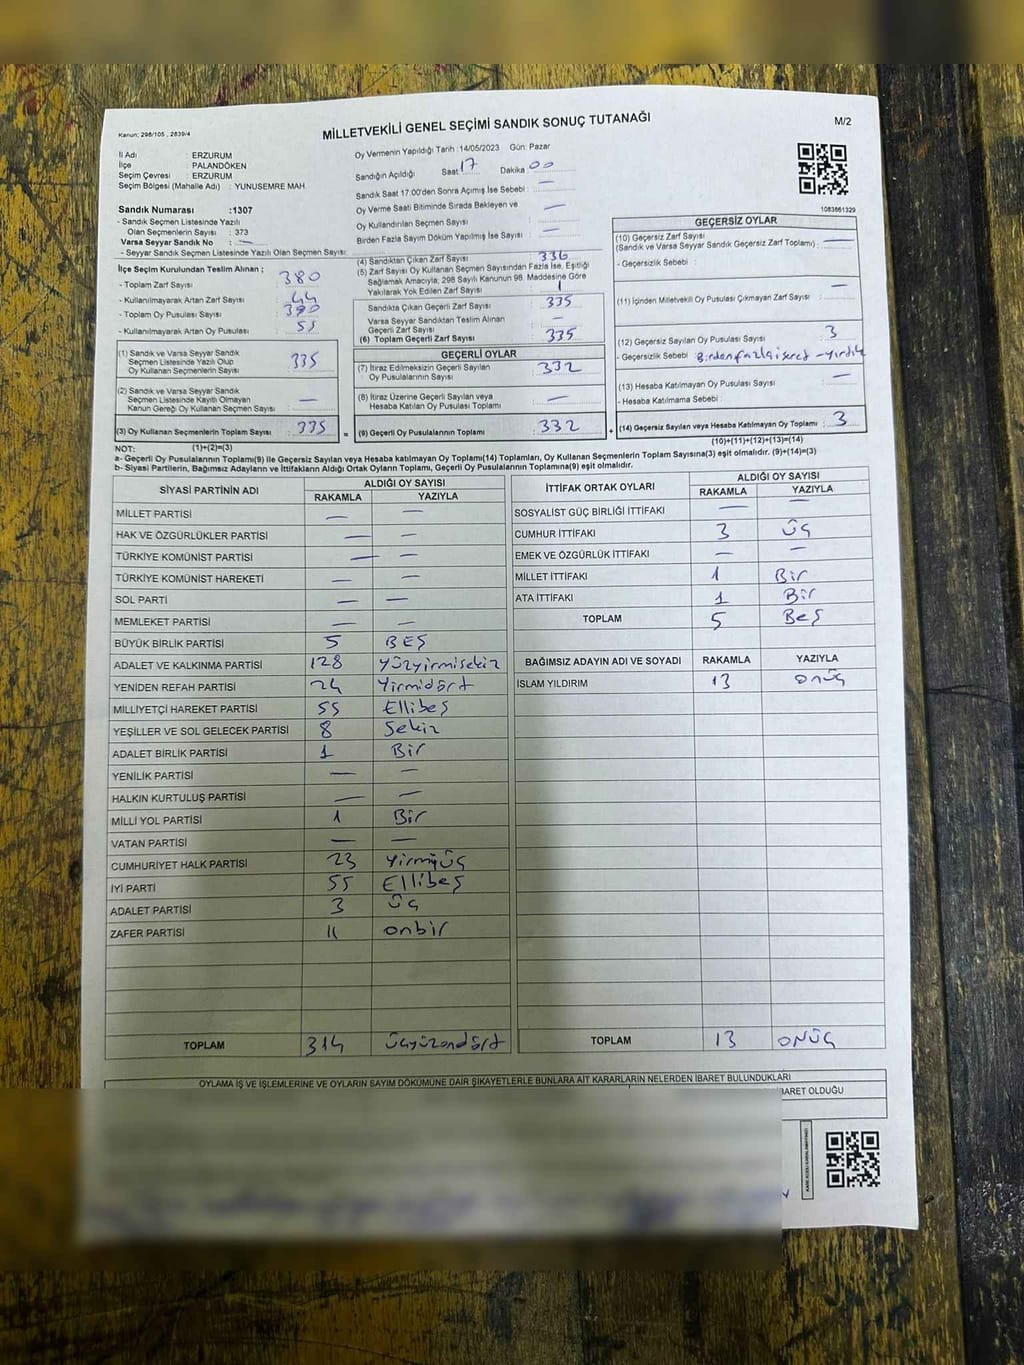 Kanun: 298/105 , 2839/4
MİLLETVEKİLİ GENEL SEÇİMİ SANDIK SONUÇ TUTANAĞI
M/2
İl Adı : ERZURUM
İlçe : PALANDÖKEN
Seçim Çevresi : ERZURUM
Seçim Bölgesi (Mahalle Adı) : YUNUSEMRE MAH.
Oy Vermenin Yapıldığı Tarih : 14/05/2023 Gün: Pazar
Sandığın Açıldığı Saat 17 Dakika 00
Sandık Saat 17:00'den Sonra Açımış İse Sebebi : —
Oy Verme Saati Bitiminde Sırada Bekleyen ve
Oy Kullandırılan Seçmen Sayısı : —
Birden Fazla Sayım Döküm Yapılmış İse Sayısı : —
1083861329
Sandık Numarası :1307
- Sandık Seçmen Listesinde Yazılı
Olan Seçmenlerin Sayısı : 373
Varsa Seyyar Sandık No : —
- Seyyar Sandık Seçmen Listesinde Yazılı Olan Seçmen Sayısı:
İlçe Seçim Kurulundan Teslim Alınan ;
- Toplam Zarf Sayısı : 380
- Kullanılmayarak Artan Zarf Sayısı : 44
- Toplam Oy Pusulası : 390
- Kullanılmayarak Artan Oy Pusulası : 55
(1) Sandık ve Varsa Seyyar Sandık
Seçmen Listesinde Yazılı Olup
Oy Kullanan Seçmenlerin Sayısı : 335
(2) Sandık ve Varsa Seyyar Sandık
Seçmen Listesinde Kayıtlı Olmayan
Kanun Gereği Oy Kullanan Seçmen Sayısı : —
(3) Oy Kullanan Seçmenlerin Toplam Sayısı : 335
(4) Sandıktan Çıkan Zarf Sayısı : 336
(5) Zarf Sayısı Oy Kullanan Seçmen Sayısından Fazla İse, Eşitliği
Sağlamak Amacıyla, 298 Sayılı Kanunun 98. Maddesine Göre
Yakılarak Yok Edilen Zarf Sayısı : 1
Sandıkta Çıkan Geçerli Zarf Sayısı : 335
Varsa Seyyar Sandıktan Teslim Alınan
Geçerli Zarf Sayısı : —
(6) Toplam Geçerli Zarf Sayısı : 335
GEÇERLİ OYLAR
(7) İtiraz Edilmeksizin Geçerli Sayılan
Oy Pusulalarının Sayısı : 332
(8) İtiraz Üzerine Geçerli Sayılan veya
Hesaba Katılan Oy Pusulası Toplamı : —
= (9) Geçerli Oy Pusulalarının Toplamı : 332
GEÇERSİZ OYLAR
(10) Geçersiz Zarf Sayısı
(Sandık ve Varsa Seyyar Sandık Geçersiz Zarf Toplamı) : —
- Geçersizlik Sebebi :
(11) İçinden Milletvekili Oy Pusulası Çıkmayan Zarf Sayısı : —
(12) Geçersiz Sayılan Oy Pusulası Sayısı : 3
- Geçersizlik Sebebi : Birden fazla işaret - yırtık
(13) Hesaba Katılmayan Oy Pusulası Sayısı : —
- Hesaba Katılmama Sebebi :
+ (14) Geçersiz Sayılan veya Hesaba Katılmayan Oy Toplamı : 3
NOT: (1)+(2)=(3)
(10)+(11)+(12)+(13)=(14)
a- Geçerli Oy Pusulalarının Toplamı(9) ile Geçersiz Sayılan veya Hesaba katılmayan Oy Toplamı(14) Toplamları, Oy Kullanan Seçmenlerin Toplam Sayısına(3) eşit olmalıdır. (9)+(14)=(3)
b- Siyasi Partilerin, Bağımsız Adayların ve İttifakların Aldığı Ortak Oyların Toplamı, Geçerli Oy Pusulalarının Toplamına(9) eşit olmalıdır.
SİYASİ PARTİNİN ADI ALDIĞI OY SAYISI
RAKAMLA YAZIYLA
MİLLET PARTİSİ — —
HAK VE ÖZGÜRLÜKLER PARTİSİ — —
TÜRKİYE KOMÜNİST PARTİSİ — —
TÜRKİYE KOMÜNİST HAREKETİ — —
SOL PARTİ — —
MEMLEKET PARTİSİ — —
BÜYÜK BİRLİK PARTİSİ 5 BEŞ
ADALET VE KALKINMA PARTİSİ 128 Yüzyirmisekiz
YENİDEN REFAH PARTİSİ 24 Yirmidört
MİLLİYETÇİ HAREKET PARTİSİ 55 Ellibeş
YEŞİLLER VE SOL GELECEK PARTİSİ 8 Sekiz
ADALET BİRLİK PARTİSİ 1 Bir
YENİLİK PARTİSİ — —
HALKIN KURTULUŞ PARTİSİ — —
MİLLİ YOL PARTİSİ 1 Bir
VATAN PARTİSİ — —
CUMHURİYET HALK PARTİSİ 23 Yirmiüç
İYİ PARTİ 55 Ellibeş
ADALET PARTİSİ 3 Üç
ZAFER PARTİSİ 11 onbir
TOPLAM 314 üçyüzondört
İTTİFAK ORTAK OYLARI ALDIĞI OY SAYISI
RAKAMLA YAZIYLA
SOSYALİST GÜÇ BİRLİĞİ İTTİFAKI — —
CUMHUR İTTİFAKI 3 Üç
EMEK VE ÖZGÜRLÜK İTTİFAKI — —
MİLLET İTTİFAKI 1 Bir
ATA İTTİFAKI 1 Bir
TOPLAM 5 Beş
BAĞIMSIZ ADAYIN ADI VE SOYADI RAKAMLA YAZIYLA
İSLAM YILDIRIM 13 onüç
TOPLAM 13 onüç
OYLAMA İŞ VE İŞLEMLERİNE VE OYLARIN SAYIM DÖKÜMÜNE DAİR ŞİKAYETLERLE BUNLARA AİT KARARLARIN NELERDEN İBARET BULUNDUKLARI
İBARET OLDUĞU